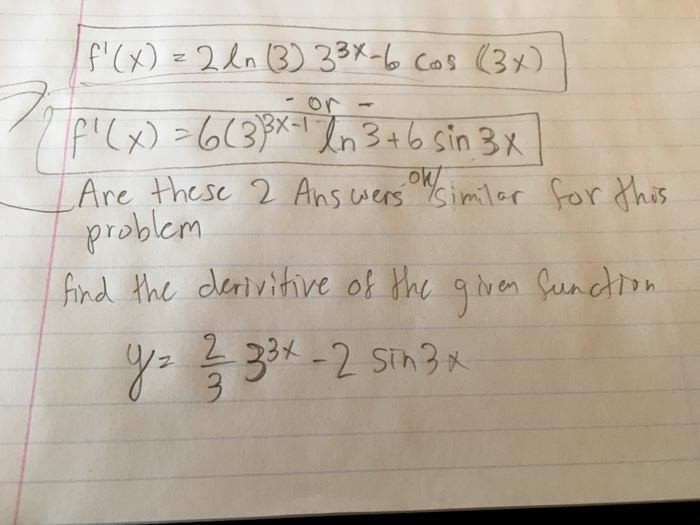 f'(x) = 2 ln (3) 3^3x - 6 cos (3x)
- or -
f'(x) = 6(3)^3x-1 ln 3 + 6 sin 3x
Are these 2 Answers ok/similar for this
problem
find the derivitive of the given function
y = 2/3 3^3x - 2 sin 3x